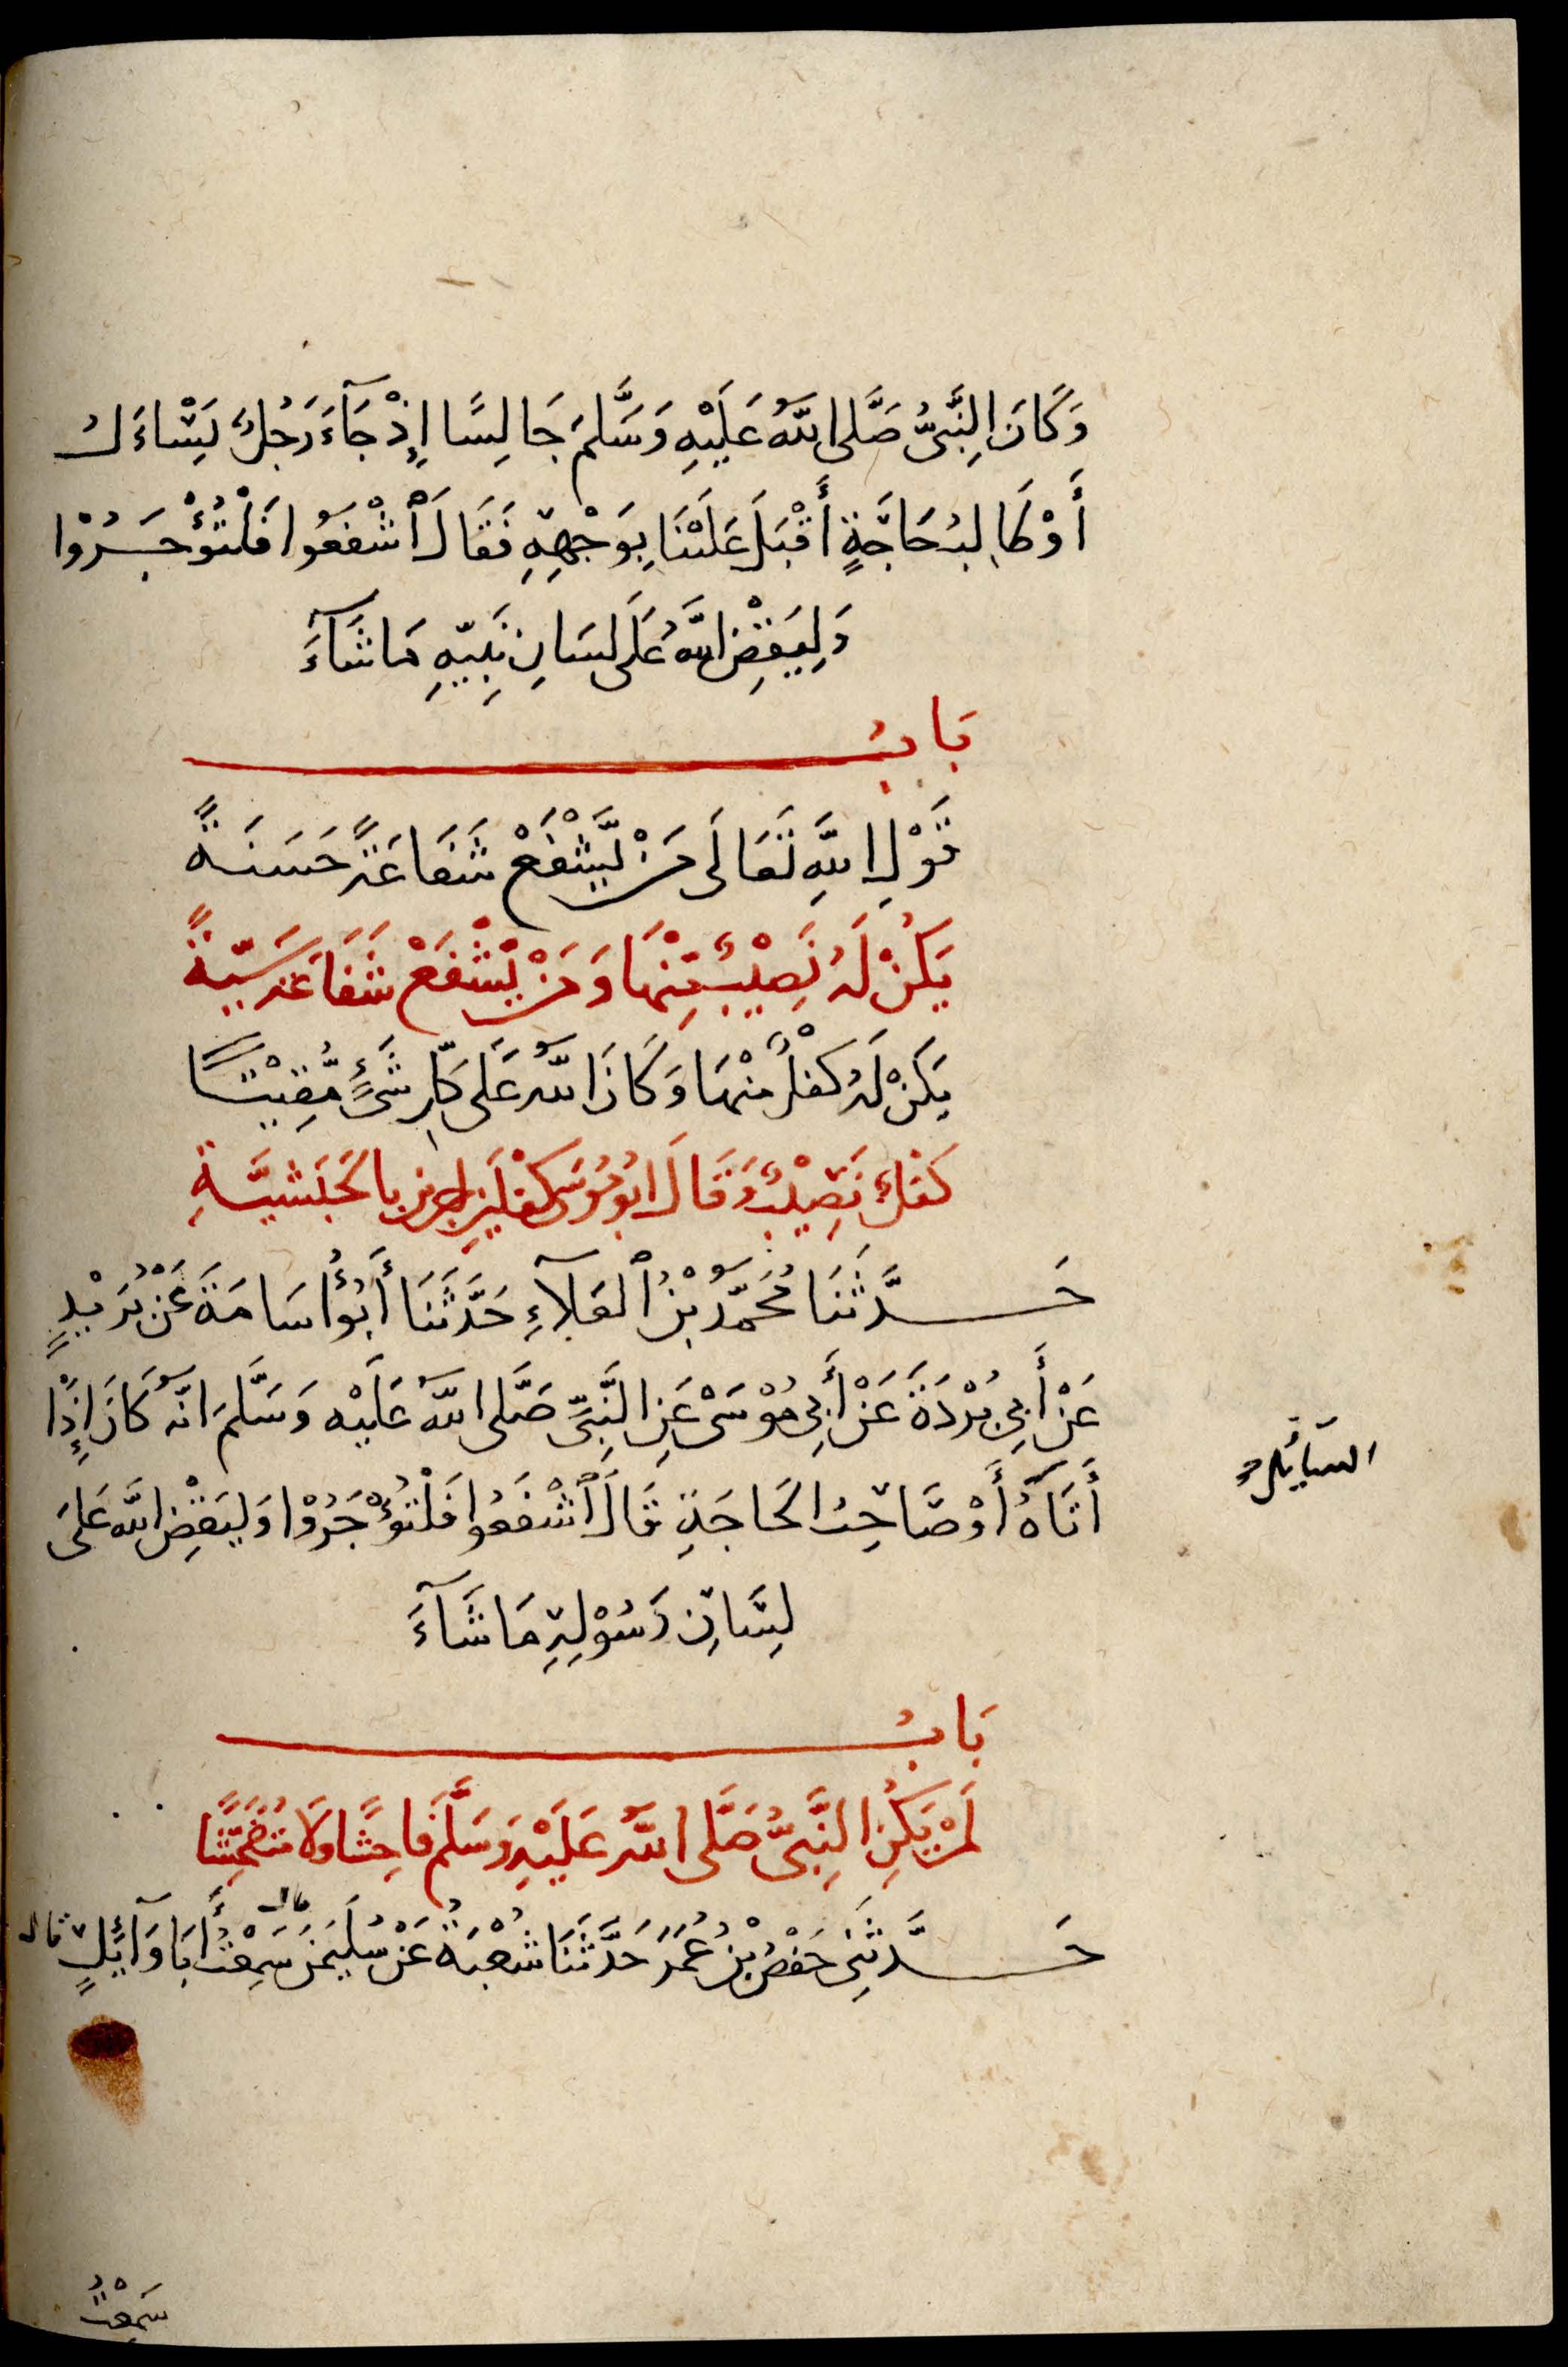 وَكَانَ النَّبِيُّ صَلَّى اللَّهُ عَلَيْهِ وَسَلَّمَ جَالِسًا إِذْ جَآءَ رَجُلٌ يَسْاءَلُ
أَوْ طَالِبُ حَاجَةٍ أَقْبَلَ عَلَيْنَا بِوَجْهِهِ فَقَالَ ٱشْفَعُوا فَلْتُؤْجَرُوْا
وَلِيَقْضِ اللَّهُ عَلَى لِسَانِ نَبِيِّهِ مَا شَآءَ
بَابُ
قَوْلِ اللَّهِ تَعَالَى مَنْ يَّشْفَعْ شَفَاعَةً حَسَنَةً
يَكُنْ لَهُ نَصِيْبٌ مِنْهَا وَمَنْ يَّشْفَعْ شَفَاعَةً سَيِّئَةً
يَكُنْ لَهُ كِفْلٌ مِنْهَا وَكَانَ اللَّهُ عَلَى كُلِّ شَيْءٍ مُّقِيْتًا
كِفْلٌ نَصِيْبٌ وَقَالَ ابُو مُوسَى كِفْلَيْنِ اجرين بالحَبَشِيَّةِ
حَدَّثَنَا مُحَمَّدُ بْنُ ٱلعَلَآءِ حَدَّثَنَا أَبُو أُسَامَةَ عَنْ بُرَيْدٍ
عَنْ أَبِي بُرْدَةَ عَنْ أَبِي مُوْسَى عَنِ النَّبِيِّ صَلَّى اللَّهُ عَلَيْهِ وَسَلَّمَ انَّهُ كَانَ إِذَا
أَتَاهُ أَوْ صَاحِبُ الحَاجَةِ قَالَ ٱشْفَعُوا فَلْتُؤْجَرُوْا وَلِيَقْضِ اللَّهُ عَلَى
السَّائِلُ
لِسَانِ رَسُوْلِهِ مَا شَآءَ
بَابُ
لَمْ يَكُنِ النَّبِيُّ صَلَّى اللَّهُ عَلَيْهِ وَسَلَّمَ فَاحِشًا وَلَا مُتَفَحِّشًا
حَدَّثَنِي حَفْصُ بْنُ عُمَرَ حَدَّثَنَا شُعْبَةُ عَنْ سُلَيْمٰنَ قال سَمِعْتُ أَبَا وَآئِلٍ قال
سَمِعْتُ